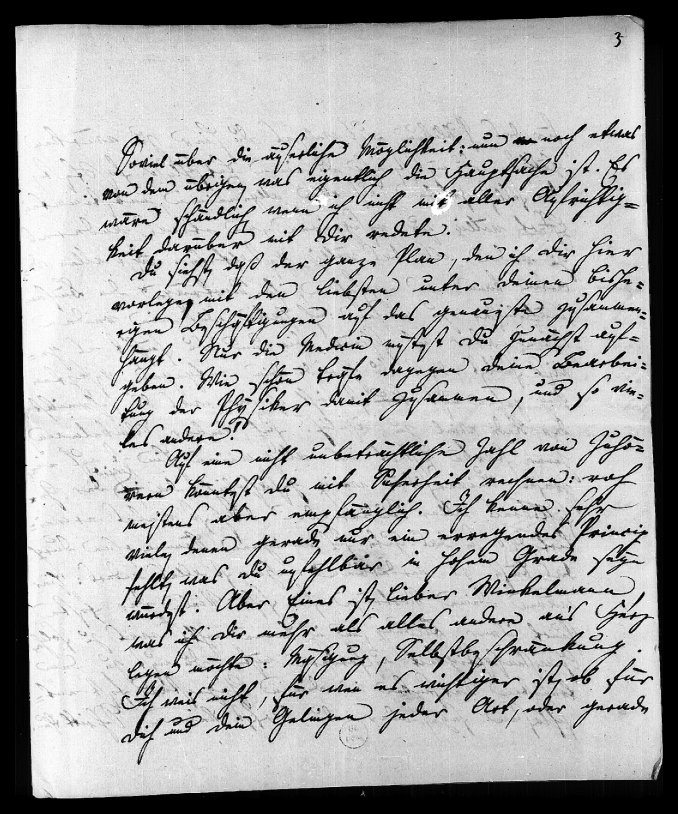 3
Soviel über die äußerliche Möglichkeit: nun noch etwas
von dem übrigen was eigentlich die Hauptsache ist. Es
wäre schändlich wenn ich nicht mit aller Aufrichtig=
keit darüber mit Dir redete.
Du siehst daß der ganze Plan, den ich Dir hier
vorlege, mit den liebsten unter deinen bishe=
rigen Beschäftigungen auf das genauste zusammen=
hängt. Nur die Medicin müßtest Du zunächst auf=
geben. Wie schön träfe dagegen deine Bearbei=
tung der Physiker damit zusammen, und so vie=
les andere!
Auf eine nicht unbeträchtliche Zahl von Zuhö=
rern könntest Du mit Sicherheit rechnen: roh
meistens aber empfänglich. Ich kenne sehr
viele, denen gerade nur ein erregendes Princip
fehlt, was Du unfehlbar in hohem Grade seyn
würdest. Aber Eines ist, lieber Winkelmann
was ich Dir mehr als alles andere ans Herz
legen möchte: Mäßigung, Selbstbeschränkung.
Ich weis nicht, für wen es wichtiger ist, ob für
Dich und dein Gelingen jeder Art, oder gerade